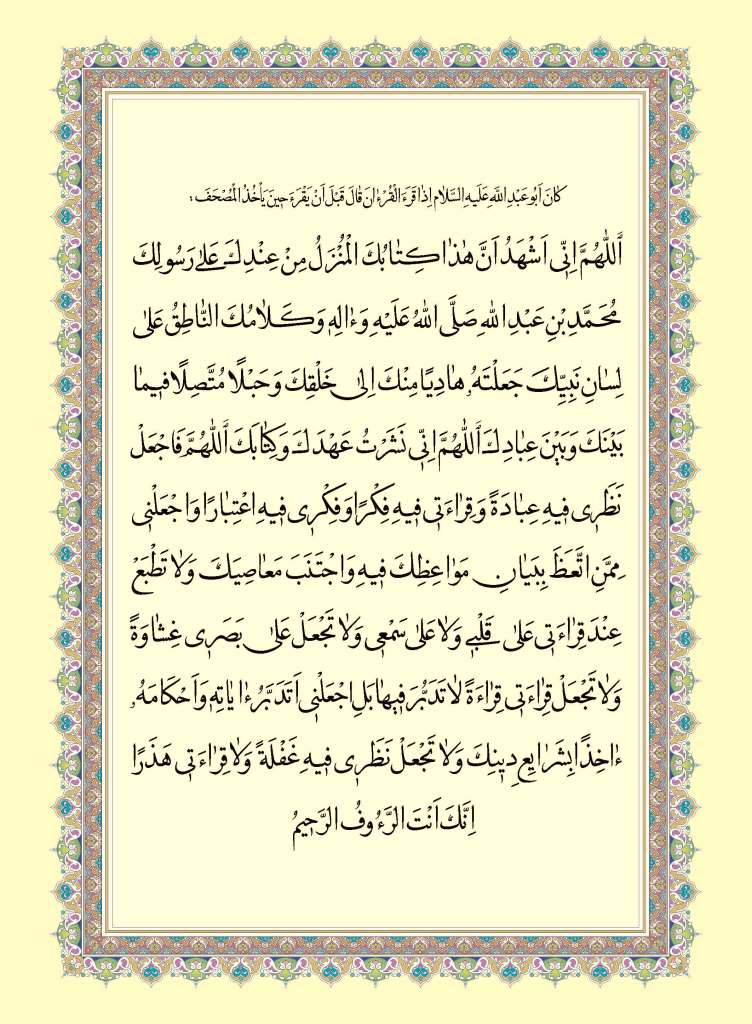 كَانَ اَبُو عَبْدِ اللَّهِ عَلَيهِ السَّلَام اِذٰا قَرَءَ الْقُرْءٰانَ قٰالَ قَبْلَ اَنْ يَقْرَءَ حِينَ يَأْخُذُ الْمُصْحَفَ :
اَللّٰهُمَّ اِنّٖى اَشْهَدُ اَنَّ هٰذٰا كِتٰابُكَ الْمُنْزَلُ مِنْ عِنْدِكَ عَلىٰ رَسُولِكَ
مُحَمَّدِ بْنِ عَبْدِ اللّٰهِ صَلَّى اللّٰهُ عَلَيْهِ وَءٰالِهٖ وَكَلٰامُكَ النّٰاطِقُ عَلىٰ
لِسٰانِ نَبِيِّكَ جَعَلْتَهُۥ هٰادِيًا مِنْكَ اِلىٰ خَلْقِكَ وَحَبْلًا مُتَّصِلًا فٖيمٰا
بَيْنَكَ وَبَيْنَ عِبٰادِكَ اَللّٰهُمَّ اِنّٖى نَشَرْتُ عَهْدَكَ وَكِتٰابَكَ اَللّٰهُمَّ فَاجْعَلْ
نَظَرٖى فٖيهِ عِبٰادَةً وَقِرٰاءَتٖى فٖيهِ فِكْرًا وَفِكْرٖى فٖيهِ اعْتِبٰارًا وَاجْعَلْنٖى
مِمَّنِ اتَّعَظَ بِبَيٰانِ مَوٰاعِظِكَ فٖيهِ وَاجْتَنَبَ مَعٰاصِيَكَ وَلٰا تَطْبَعْ
عِنْدَ قِرٰاءَتٖى عَلىٰ قَلْبٖى وَلٰا عَلىٰ سَمْعٖى وَلٰا تَجْعَلْ عَلىٰ بَصَرٖى غِشٰاوَةً
وَلٰا تَجْعَلْ قِرٰاءَتٖى قِرٰاءَةً لٰا تَدَبُّرَ فٖيهٰا بَلِ اجْعَلْنٖى اَتَدَبَّرُ ءٰايٰاتِهٖ وَاَحْكٰامَهُۥ
ءٰاخِذًا بِشَرٰايِعِ دٖينِكَ وَلٰا تَجْعَلْ نَظَرٖى فٖيهِ غَفْلَةً وَلٰا قِرٰاءَتٖى هَذَرًا
اِنَّكَ اَنْتَ الرَّءُوفُ الرَّحٖيمُ